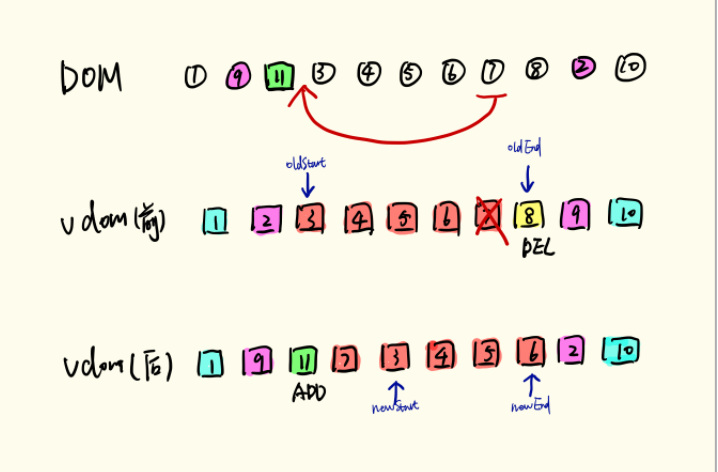 DOM ① ⑨ 11 ③ ④ ⑤ ⑥ ⑦ ⑧ ② ⑩
oldStart oldEnd
vdom(前) 1 2 3 4 5 6 7 8 9 10
DEL
vdom(后) 1 9 11 7 3 4 5 6 2 10
ADD
newStart newEnd